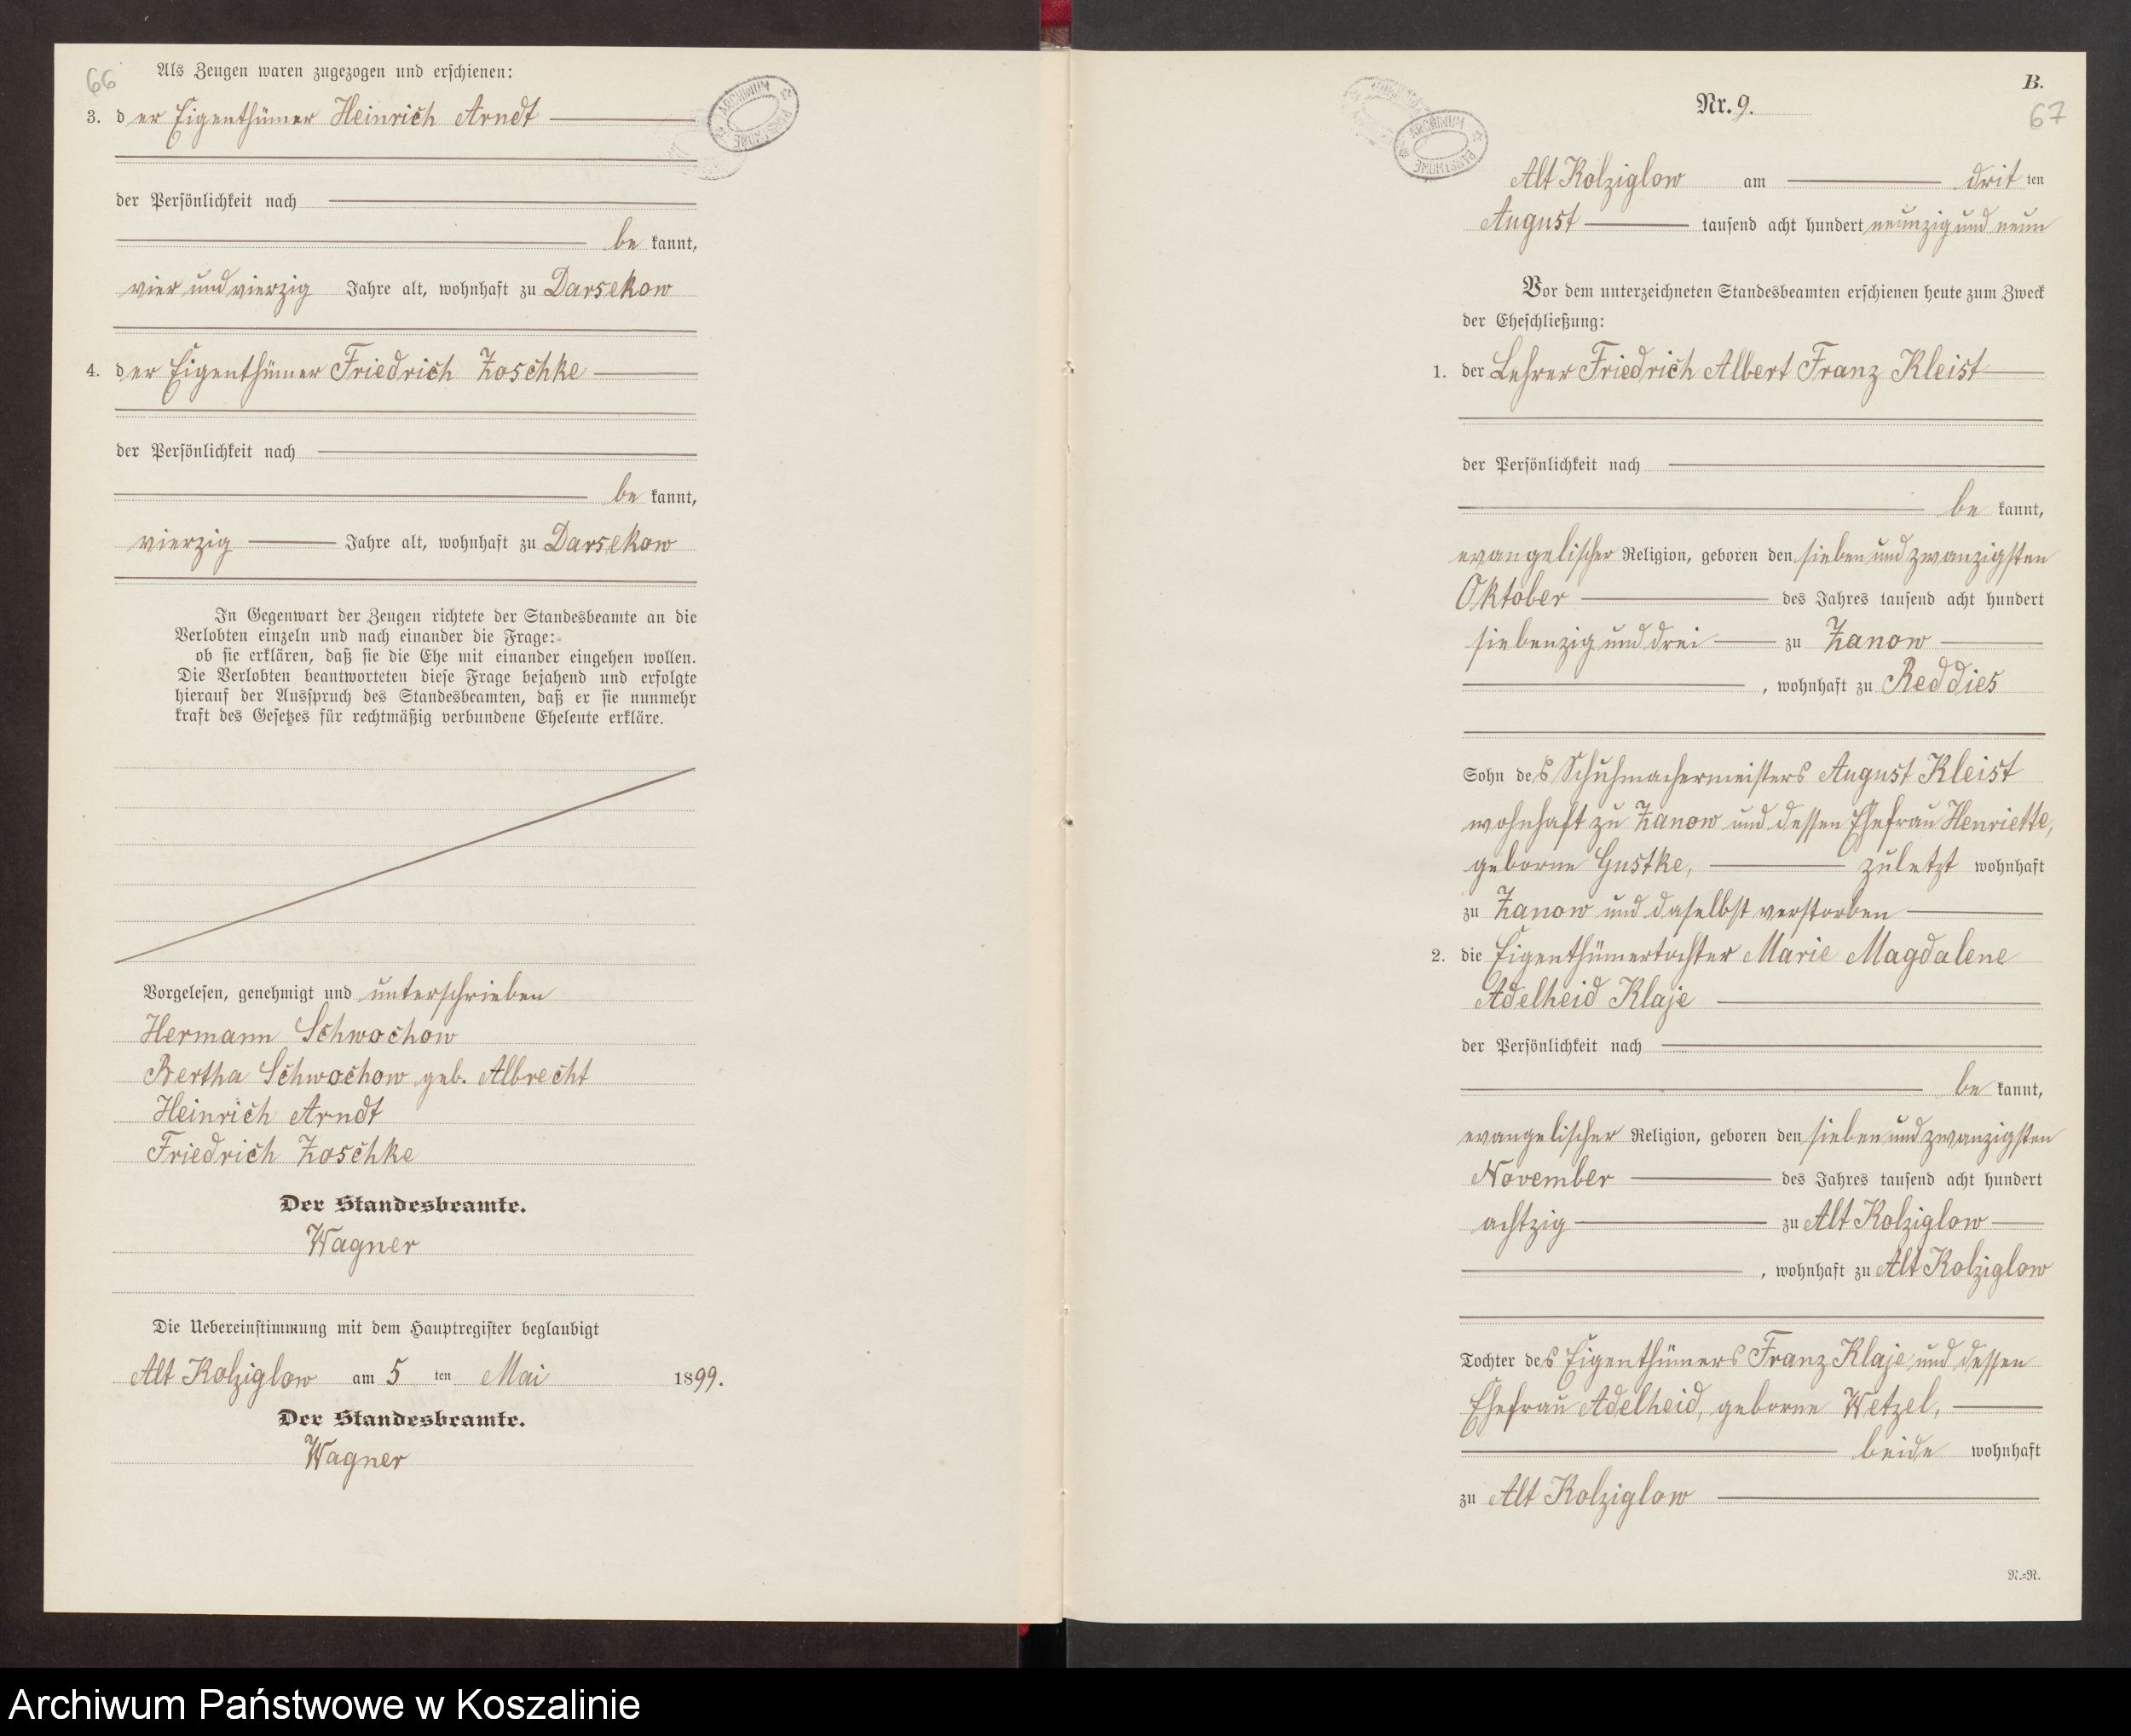 66
Als Zeugen waren zugezogen und erschienen:
3. der Eigenthümer Heinrich Arndt
der Persönlichkeit nach
be kannt,
vier und vierzig Jahre alt, wohnhaft zu Darsekow
4. der Eigenthümer Friedrich Zoschke
der Persönlichkeit nach
be kannt,
vierzig Jahre alt, wohnhaft zu Darsekow
In Gegenwart der Zeugen richtete der Standesbeamte an die
Verlobten einzeln und nach einander die Frage:
ob sie erklären, daß sie die Ehe mit einander eingehen wollen.
Die Verlobten beantworteten diese Frage bejahend und erfolgte
hierauf der Ausspruch des Standesbeamten, daß er sie nunmehr
kraft des Gesetzes für rechtmäßig verbundene Eheleute erkläre.
Vorgelesen, genehmigt und unterschrieben
Hermann Schwochow
Bertha Schwochow geb. Albrecht
Heinrich Arndt
Friedrich Zoschke
Der Standesbeamte.
Wagner
Die Uebereinstimmung mit dem Hauptregister beglaubigt
Alt Kolziglow am 5 ten Mai 1899.
Der Standesbeamte.
Wagner
ARCHIWUM PAŃSTWOWE
B.
Nr. 9.
67
ARCHIWUM PAŃSTWOWE
Alt Kolziglow am dritten
August tausend acht hundert neunzig und neun
Vor dem unterzeichneten Standesbeamten erschienen heute zum Zweck
der Eheschließung:
1. der Lehrer Friedrich Albert Franz Kleist
der Persönlichkeit nach
be kannt,
evangelischer Religion, geboren den sieben und zwanzigsten
Oktober des Jahres tausend acht hundert
siebenzig und drei zu Zanow
, wohnhaft zu Reddies
Sohn des Schuhmachermeisters August Kleist
wohnhaft zu Zanow und dessen Ehefrau Henriette,
geborne Gustke, zuletzt wohnhaft
zu Zanow und daselbst verstorben
2. die Eigenthümertochter Marie Magdalene
Adelheid Klaje
der Persönlichkeit nach
be kannt,
evangelischer Religion, geboren den sieben und zwanzigsten
November des Jahres tausend acht hundert
achtzig zu Alt Kolziglow
, wohnhaft zu Alt Kolziglow
Tochter des Eigenthümers Franz Klaje und dessen
Ehefrau Adelheid, geborne Wetzel,
beide wohnhaft
zu Alt Kolziglow
N.=R.
Archiwum Państwowe w Koszalinie